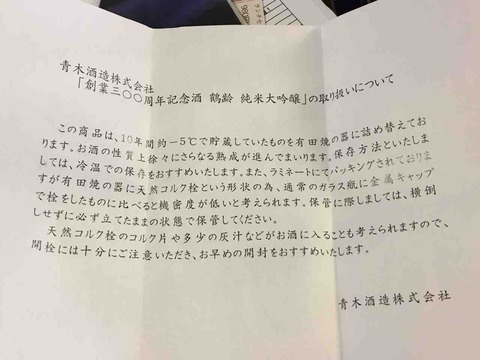 青木酒造株式会社
「創業三〇〇周年記念酒 鶴齢 純米大吟醸」の取り扱いについて
この商品は、10年間約－5℃で貯蔵していたものを有田焼の器に詰め替えてお
ります。お酒の性質上徐々にさらなる熟成が進んでまいります。保存方法といたしま
しては、冷温での保存をおすすめいたします。また、ラミネートにてパッキングされておりま
すが有田焼の器に天然コルク栓という形状の為、通常のガラス瓶に金属キャップ
で栓をしたものに比べると機密度が低いと考えられます。保管に際しましては、横倒
しせずに必ず立てたままの状態で保管してください。
天然コルク栓のコルク片や多少の灰汁などがお酒に入ることも考えられますので、
開栓には十分にご注意いただき、お早めの開封をおすすめいたします。
青木酒造株式会社